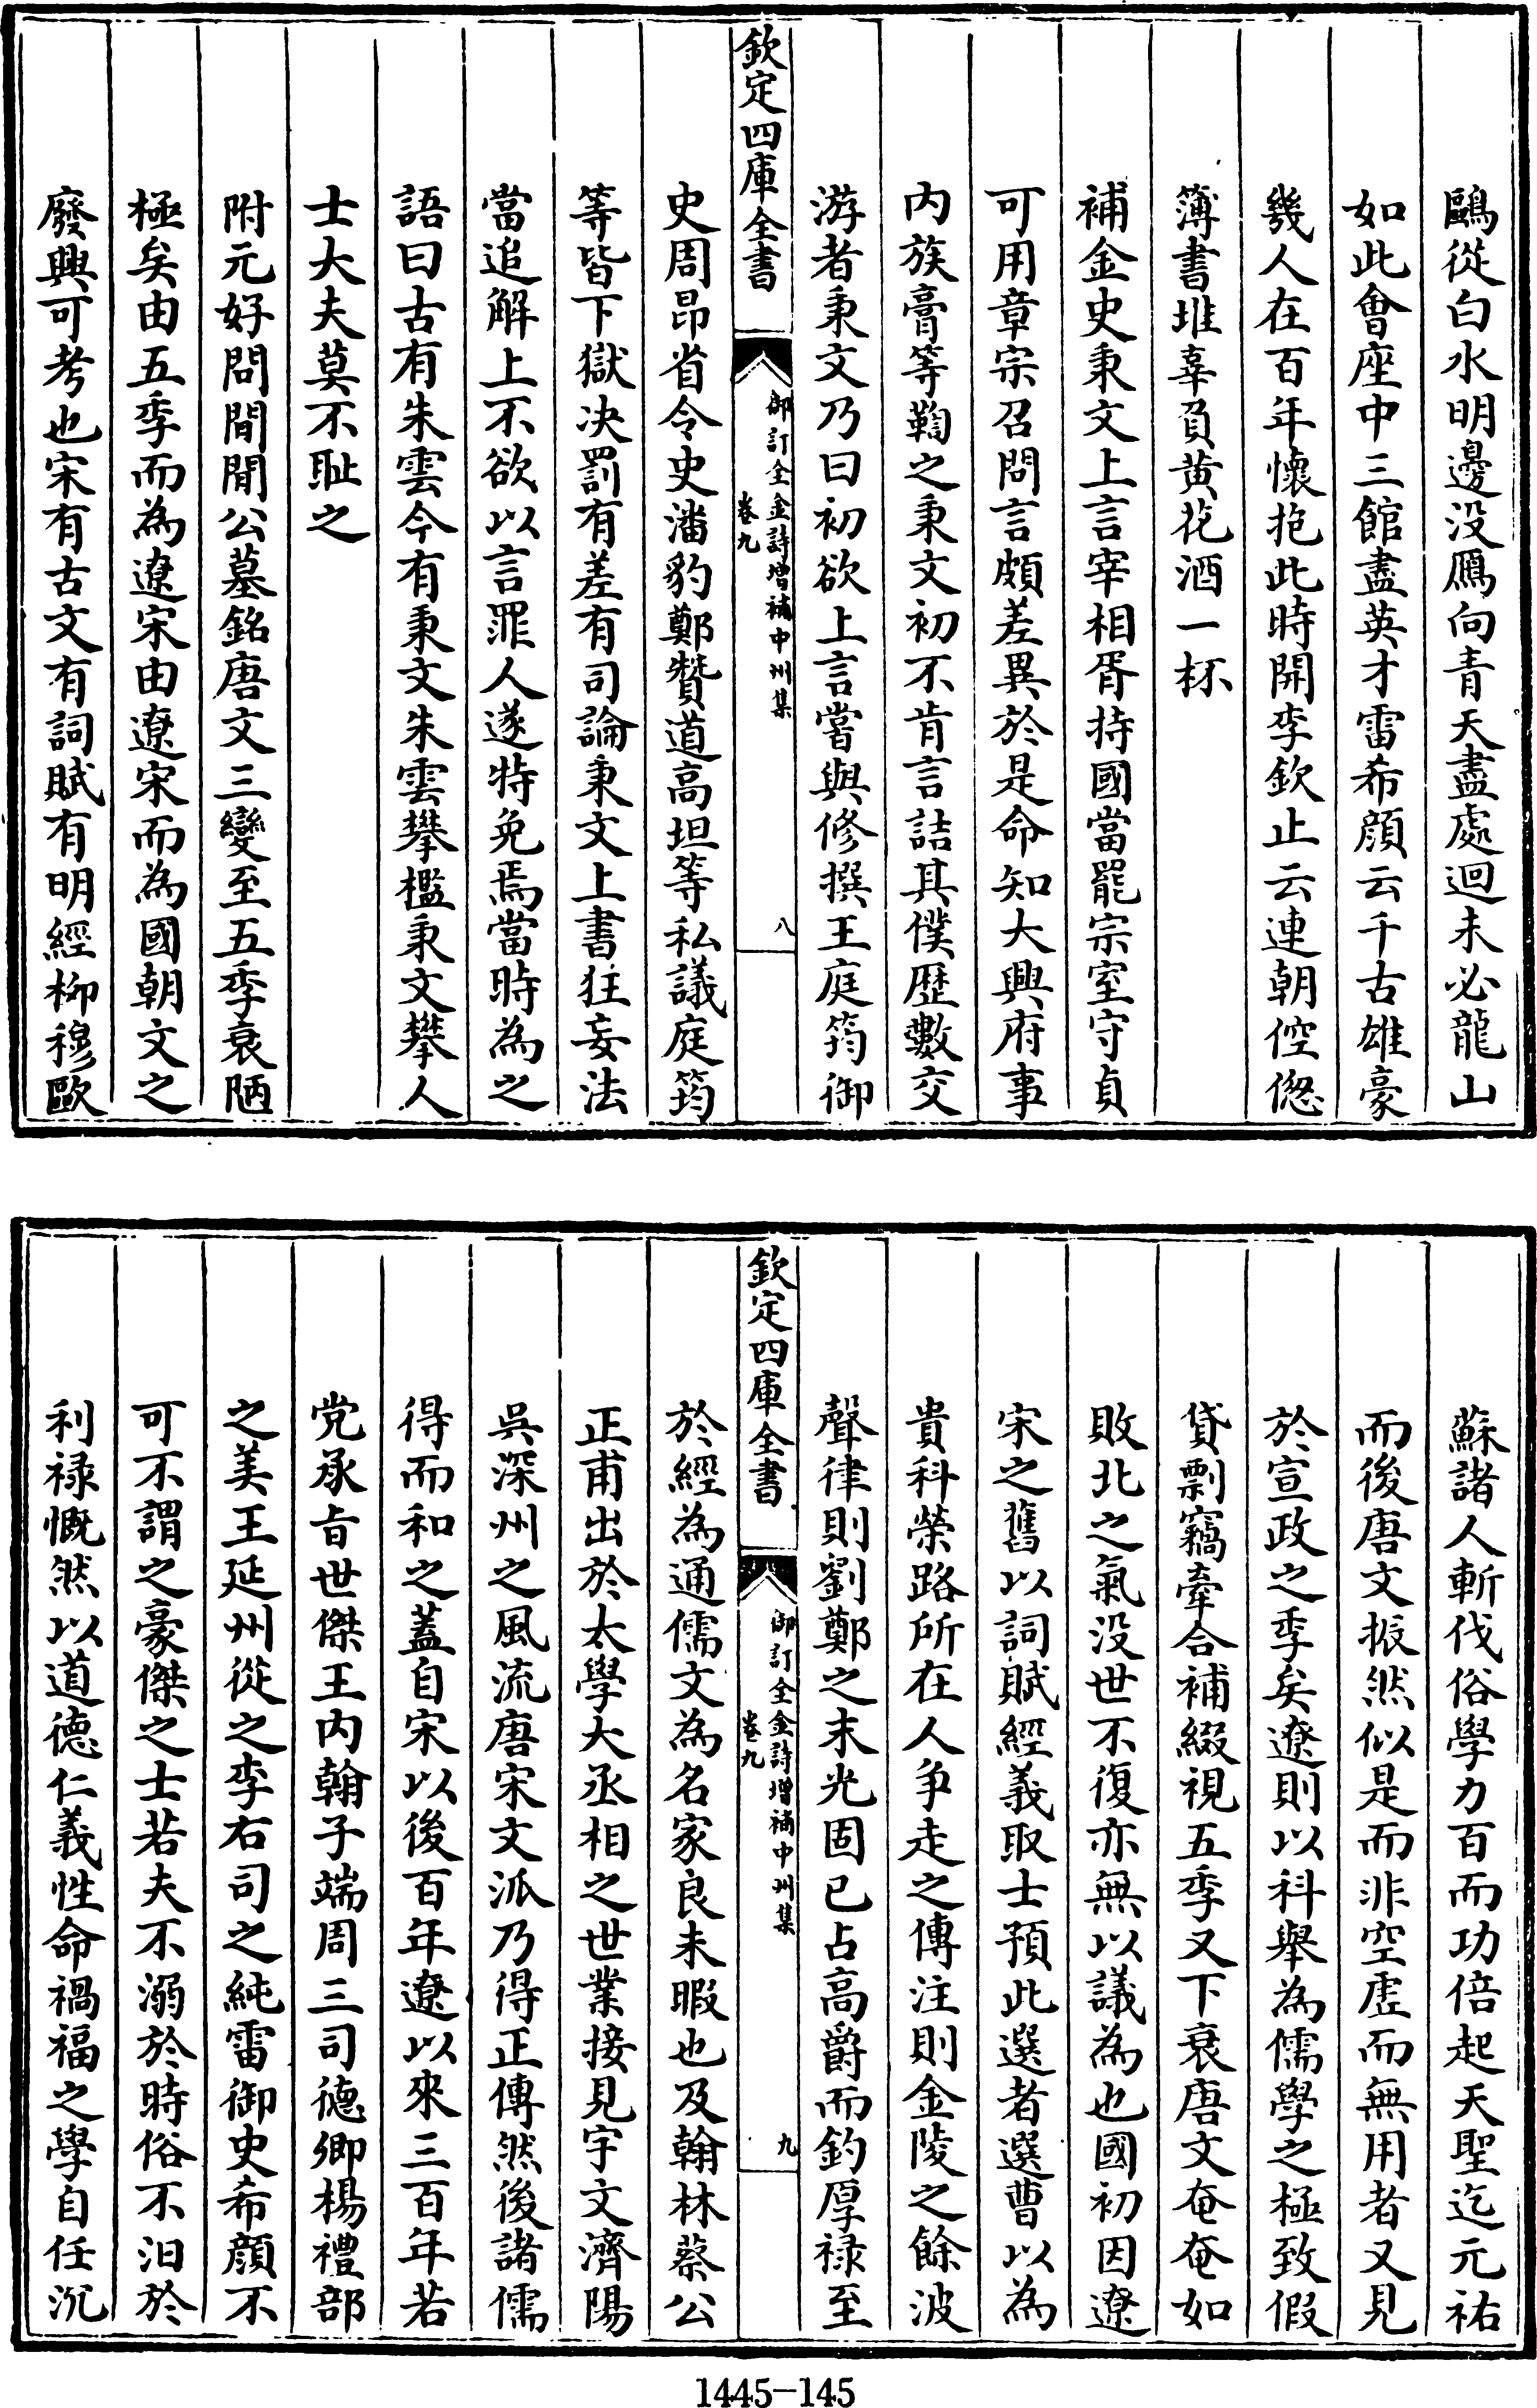 鷗從白水明邊没鴈向青天盡處迴未必龍山
如此會座中三館盡英才雷希顔云千古雄豪
幾人在百年懷抱此時開李欽止云連朝倥偬
簿書堆辜負黄花酒一杯
補金史秉文上言宰相胥持國當罷宗室守貞
可用章宗召問言頗差異於是命知大興府事
内族膏等鞫之秉文初不肯言詰其僕歴數交
游者秉文乃曰初欲上言嘗與修撰王庭筠御
欽定四庫全書
御訂全金詩增補中州集
卷九
八
史周昂省令史潘豹鄭贊道高坦等私議庭筠
等皆下獄决罰有差有司論秉文上書狂妄法
當追解上不欲以言罪人遂特免焉當時為之
語曰古有朱雲今有秉文朱雲攀檻秉文攀人
士大夫莫不耻之
附元好問閒閒公墓銘唐文三變至五季衰陋
極矣由五季而為遼宋由遼宋而為國朝文之
廢興可考也宋有古文有詞賦有明經柳穆歐
蘇諸人斬伐俗學力百而功倍起天聖迄元祐
而後唐文振然似是而非空虚而無用者又見
於宣政之季矣遼則以科舉為儒學之極致假
貸剽竊牽合補綴視五季又下衰唐文奄奄如
敗北之氣没世不復亦無以議為也國初因遼
宋之舊以詞賦經義取士預此選者選曹以為
貴科榮路所在人争走之傳注則金陵之餘波
聲律則劉鄭之末光固已占高爵而釣厚禄至
欽定四庫全書
御訂全金詩增補中州集
卷九
九
於經為通儒文為名家良未暇也及翰林蔡公
正甫出於太學大丞相之世業接見宇文濟陽
吳深州之風流唐宋文派乃得正傳然後諸儒
得而和之蓋自宋以後百年遼以來三百年若
党承旨世傑王内翰子端周三司德卿楊禮部
之美王延州從之李右司之純雷御史希顔不
可不謂之豪傑之士若夫不溺於時俗不汩於
利禄慨然以道德仁義性命禍福之學自任沉
1445-145